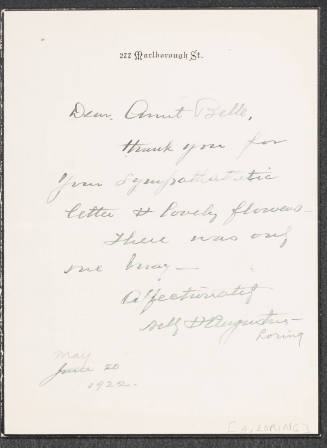 222 Marlborough St.
Dear Aunt Belle,
Thank you for
your sympathetic
letter & lovely flowers —
There was only
one
Affectionately
& Augustus —
Loring
May
June 20
1922.
[A. LORING]